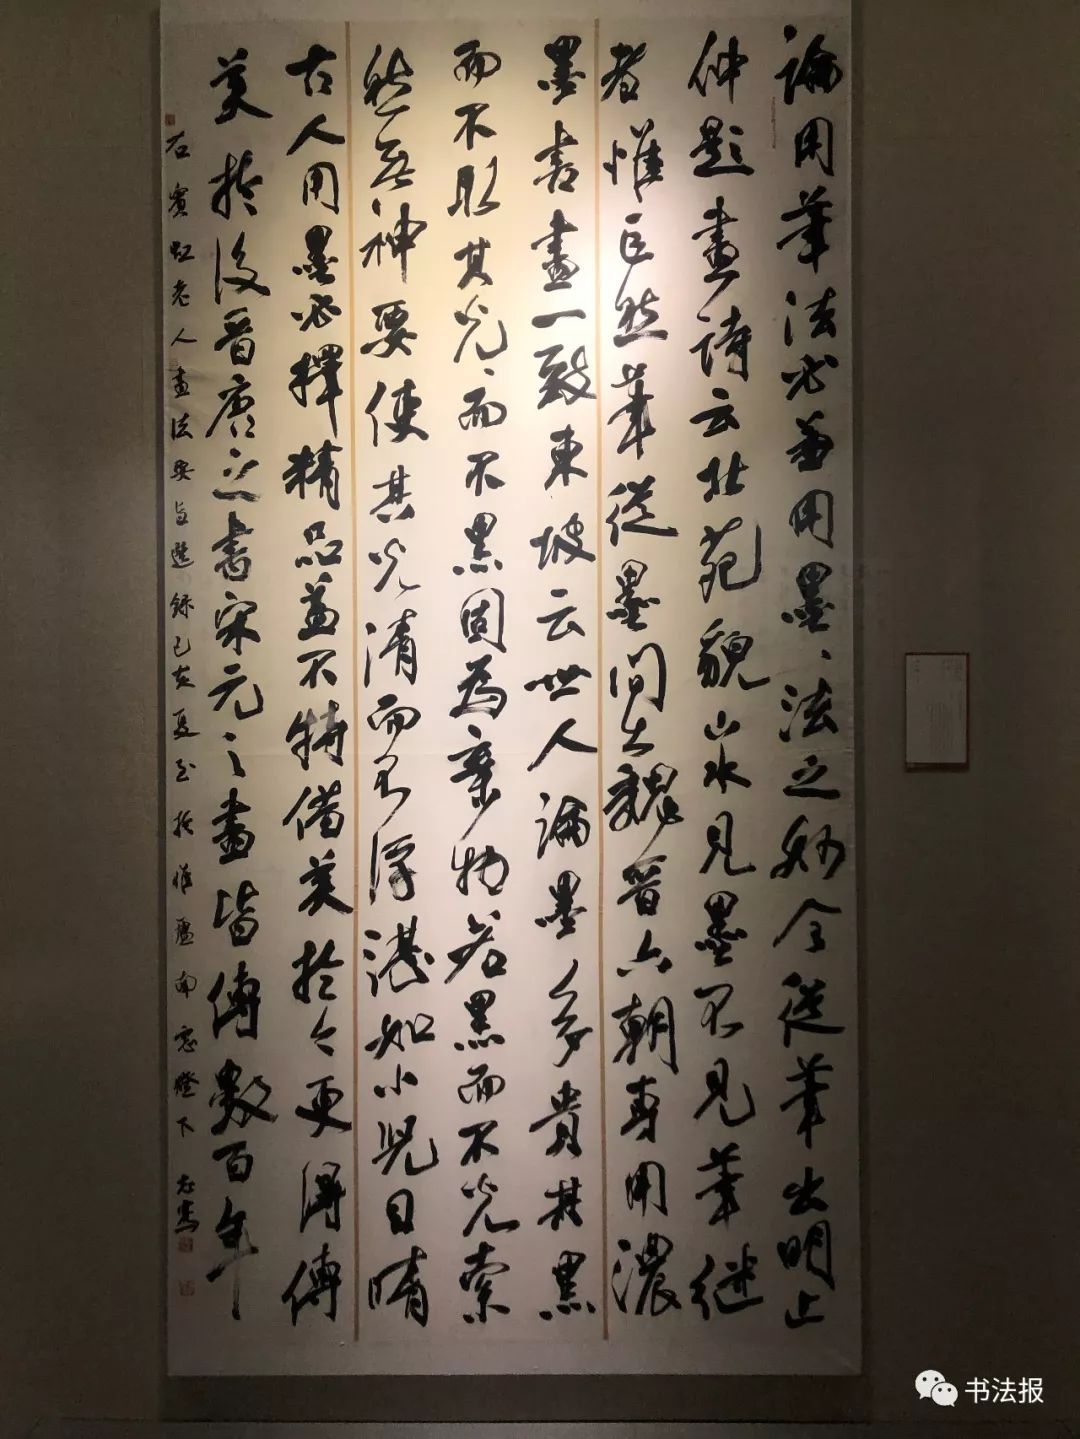 論用筆法必兼用墨、法之妙全從筆出明止
仲題畫詩云北苑貌山水見墨不見筆继
者惟巨然筆從墨間出魏晋六朝專用濃
墨書畫一致東坡云世人論墨多貴其黑
而不取其光、而不黑固為棄物若黑而不光索
然無神要使其光清而不浮湛如小兒目晴
古人用墨必擇精品盖不特借美於今更得傳
美於後晋唐之書宋元之畫皆傳數百年
右賓虹老人畫法要旨選錄己亥夏至於惟廬南窓燈下
书法报